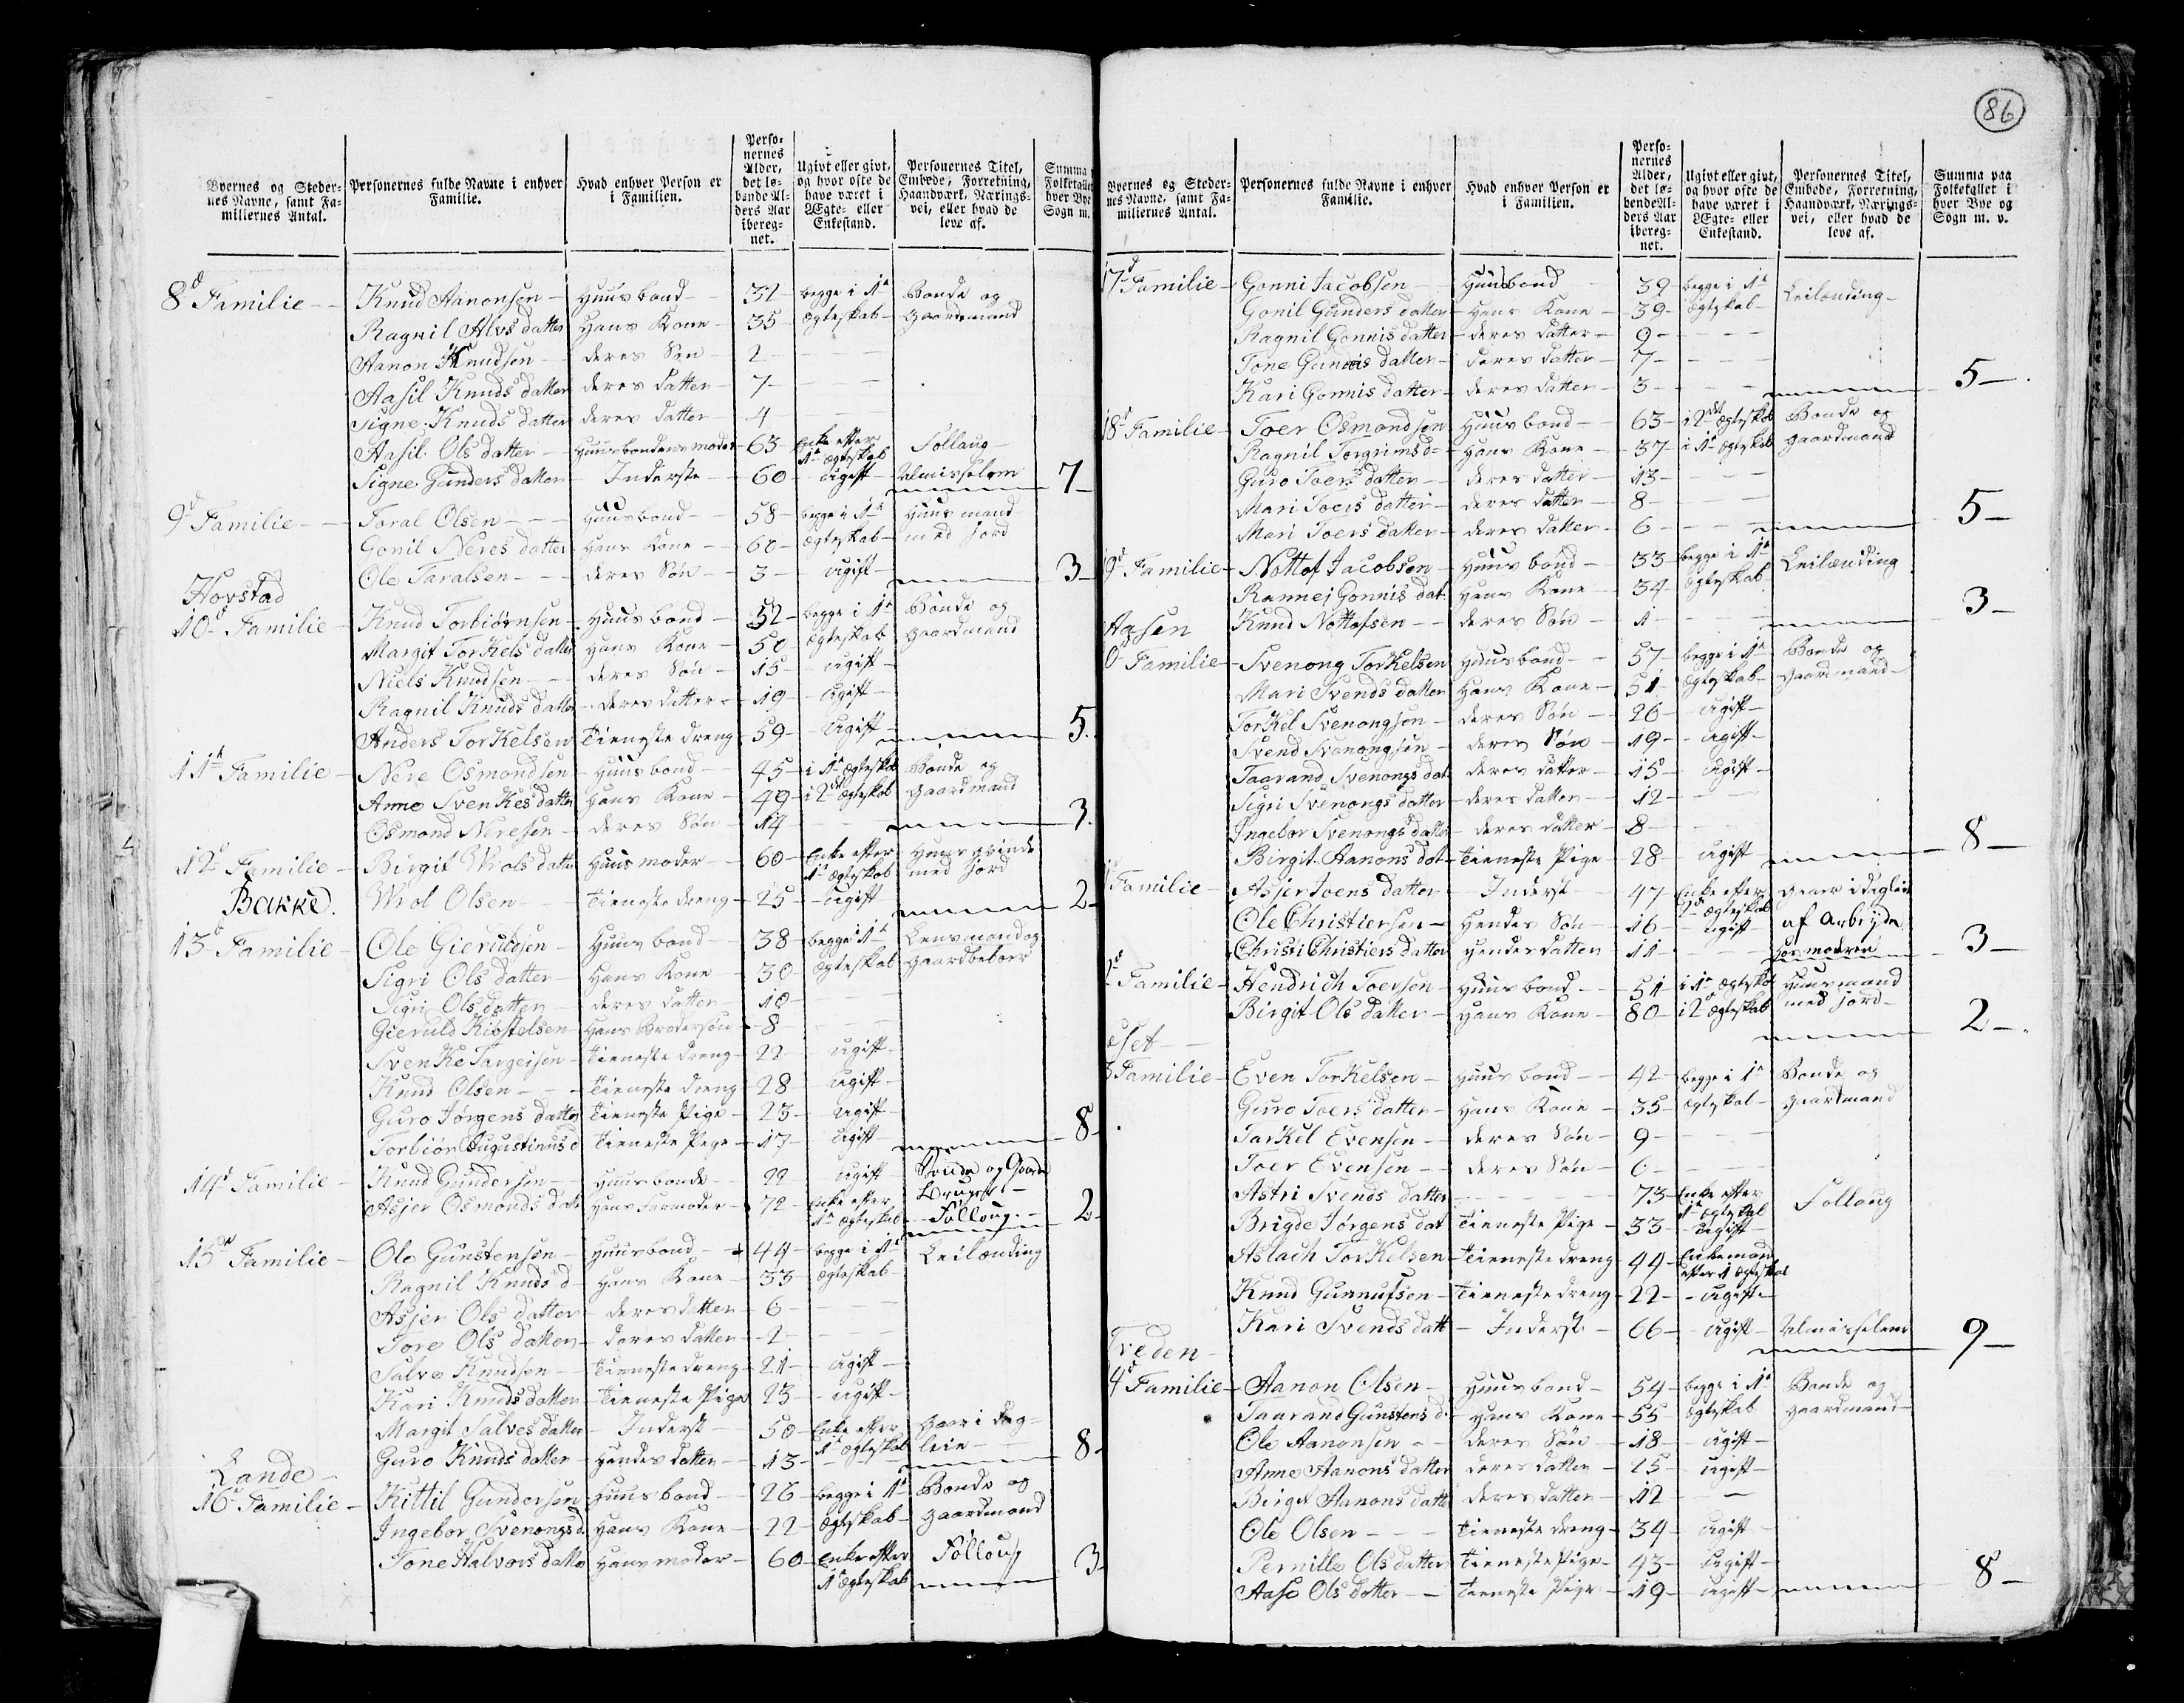 86
Byernes og Steder-
nes Navne, samt Fa-
miliernes Antal.
Personernes fulde Navne i enhver
Familie.
Hvad enhver Person er
i Familien.
Perso-
nernes
Alder,
det lø-
bende Al-
ders Aar
ibereg-
net.
Ugivt eller givt,
og hvor ofte de
have været i
Ægte- eller
Enkestand.
Personernes Titel,
Embede, Forretning,
Haandværk, Nærings-
vei, eller hvad de
leve af.
Summa
Folketallet
hver Bye
Sogn m.
8d Familie - Knud Aanonsen - Huusbond - 32 - begge i 1te Bonde og
Ragnil Alvs datter Hans Kone - 35 - Ægteskab - Gaardmand
Aanon Knudsen - deres Søn - 2 -
Aasil Knuds datter deres datter - 7 -
Signe Knuds datter deres datter - 4 -
Aasil Ols datter - Huusbondens moder - 63 - Enke efter 1te Ægteskab Follaug -
Signe Gunders datter - Inderste - 60 - ugift - Almisselem 7 -
9d Familie - Toral Olsen - Huusbond - 58 - begge i 1te Huusmand
Gonil Neres datter Hans Kone - 60 - Ægteskab - med Jord
Ole Taralsen - deres Søn - 3 - ugift - 3 -
Hovstad
10d Familie - Knud Torbiørnsen - Huusbond - 52 - begge i 1te Bonde og
Margit Torkels datter Hans Kone - 50 Ægteskab Gaardmand
Niels Knudsen - deres Søn - 15 - ugift -
Ragnil Knuds datter - deres datter - 19 - ugift -
Anders Torkelsen Tieneste dreng - 59 - ugift - 5.
11te Familie - Nere Osmondsen - Huusbond - 45 - i 1te Ægteskab Bonde og
Anne Svenkes datter Hans Kone - 49 - i 2det Ægteskab Gaardmand
Osmond Neresen - deres Søn - 14 - 3.
12d Familie - Birgit Wrols datter Huusmoder - 60 - Enke efter 1te Ægteskab Huusqvinde med Jord
Bakke. Wrol Olsen - Tieneste dreng - 25 - ugift 2 -
13d Familie - Ole Gierulsen - Huusbond - 38 - begge i 1te Lensmand og
Sigri Ols datter - Hans Kone - 30 - Ægteskab Gaardbeboer
Sigri Ols datter - deres datter - 10 -
Gieruld Kiostolsen - Hans Brodersøn - 8 -
Svenke Targeisen - Tieneste dreng - 22 - ugift -
Knud Olsen - Tieneste dreng - 28 - ugift -
Guro Jørgens datter Tieneste Pige - 23 - ugift -
Torbiør Augustinus d Tieneste Pege - 17 - ugift - 8 -
14d Familie - Knud Gundersen - Huusbonde - 22 ugift Bonde og Gaard
Asjer Osmonds datt Hans Farmoder - 72 - Enke efter 1te Ægteskab - Follaug - 2 -
15de Familie - Ole Gunstensen - Huusbond - 44 - begge i 1te Leilænding
Ragnil Knuds d - Hans Kone - 33 - Ægteskab -
Asjer Ols datter - deres datter - 6 -
Tore Ols datter - deres datter - 2 -
Salve Knudsen - Tieneste dreng - 21 - ugift -
Kari Knuds datter - Tieneste Pige 23 - ugift -
Margit Salves datter - Inderst - 50 - Enke efter Gaar i dag-
Guro Knuds datter - Hendes datter - 13 - 1te Ægteskab leie - 8 -
Lande -
16d Familie - Kittil Gundersen Huusbond - 26 - begge i 1te Bonde og
Ingebor Svenongs d. Hans Kone - 22 - Ægteskab - Gaardmand
Tone Halvors datter Hans moder - 60 - Enke efter 1te Ægteskab Follaug 3 -
Byernes og Steder-
nes Navne, samt Fa-
miliernes Antal.
Personernes fulde Navne i enhver
Familie.
Hvad enhver Person er
i Familien.
Perso-
nernes
Alder,
det lø-
bende Al-
ders Aar
ibereg-
net.
Ugivt eller givt,
og hvor ofte de
have været i
Ægte- eller
Enkestand.
Personernes Titel,
Embede, Forretning,
Haandværk, Nærings-
vei, eller hvad de
leve af.
Summa paa
Folketallet i
hver Bye og
Sogn m. v.
17d Familie - Gonni Jacobsen - Huusbond 39 - begge i 1te Leilænding -
Gonil Gunders datter - Hans Kone - 39 - Ægteskab -
Ragnil Gonnis datter - deres datter - 9 -
Tone Gunnis datter - deres datter - 7 -
Kari Gonnis datter - deres datter - 3 - 5 -
18d Familie - Toer Osmondsen Huusbond - 63 - i 2det Ægteskab Bonde og
Ragnil Torgrims d - Hans Kone - 37 - i 1te Ægteskab Gaardmand
Guro Toers datter - deres datter - 13 -
Mari Toers datter - deres datter - 8 -
Mari Toers datter - deres datter - 6 - 5 -
9d Familie - Nottof Jacobsen - Huusbond - 33 - begge i 1te Leilænding
Rannej Gonnis dat. Hans Kone - 34 - Ægteskab
Aasen Knud Nottofsen - deres Søn - 1 - 3 -
0d Familie - Svenong Torkelsen Huusbond - 57 - begge i 1te Bonde og
Mari Svends datter Hans Kone - 51 - Ægteskab - Gaardmand -
Torkel Svenongsen - deres Søn - 26 - ugift -
Svend Svenongsen - deres Søn - 19 - ugift -
Taarand Svenongs dat deres datter - 15 - ugift -
Sigri Svenongs datter - deres datter - 12 -
Ingebor Svenongs datter - deres datter - 8 -
Birgit Aanons dat - Tieneste Pige - 28 - ugift 8 -
Familie - Asjer Joens datter - Inderst - 47 - Enke efter Ægteskab Gaar i dagleie
Ole Christiersen - Hendes Søn - 16 - ugift af Arbeyde
Christi Christiers datter Hendes datter 11 - hos moderen 3 -
Familie - Hendrich Toersen - Huusbond - 51 - i 1te Ægteskab Huusmand
Birgit Ols datter - Hans Kone - 80 - i 2det Ægteskab med Jord - 2 -
set -
Familie - Even Torkelsen - Huusbond - 42 - begge i 1te Bonde og
Guro Toers datter - Hans Kone - 35 - Ægteskab - Gaardmand
Tarkel Evensen - deres Søn - 9 -
Toer Evensen - deres Søn - 6 -
Astri Svends datter - 73 - Enke efter 1te Ægteskab Follaug
Brigde Jørgens dat Tieneste Pige - 33 - ugift -
Aslach Torkelsen - Tieneste dreng - 44 - Enkemand efter 1 Ægteskab
Knud Gunnulfsen - Tieneste dreng - 22 - ugift -
Kari Svends datt - Inderst - 66 - ugift - Almisselem 9 -
Tveden -
4d Familie - Aanon Olsen - Huusbond - 54 - begge i 1te Bonde og
Taarand Gunstens d - Hans Kone - 55 - Ægteskab Gaardmand -
Ole Aanonsen - deres Søn - 18 - ugift -
Anne Aanons datter deres datter - 15 - ugift -
Birget Aanons datter deres datter - 12 -
Ole Olsen - Tieneste dreng - 34 - ugift -
Pernille Ols datter Tieneste Pige - 43 - ugift -
Aase Ols datter - Tieneste Pige - 19 - ugift - 8 -